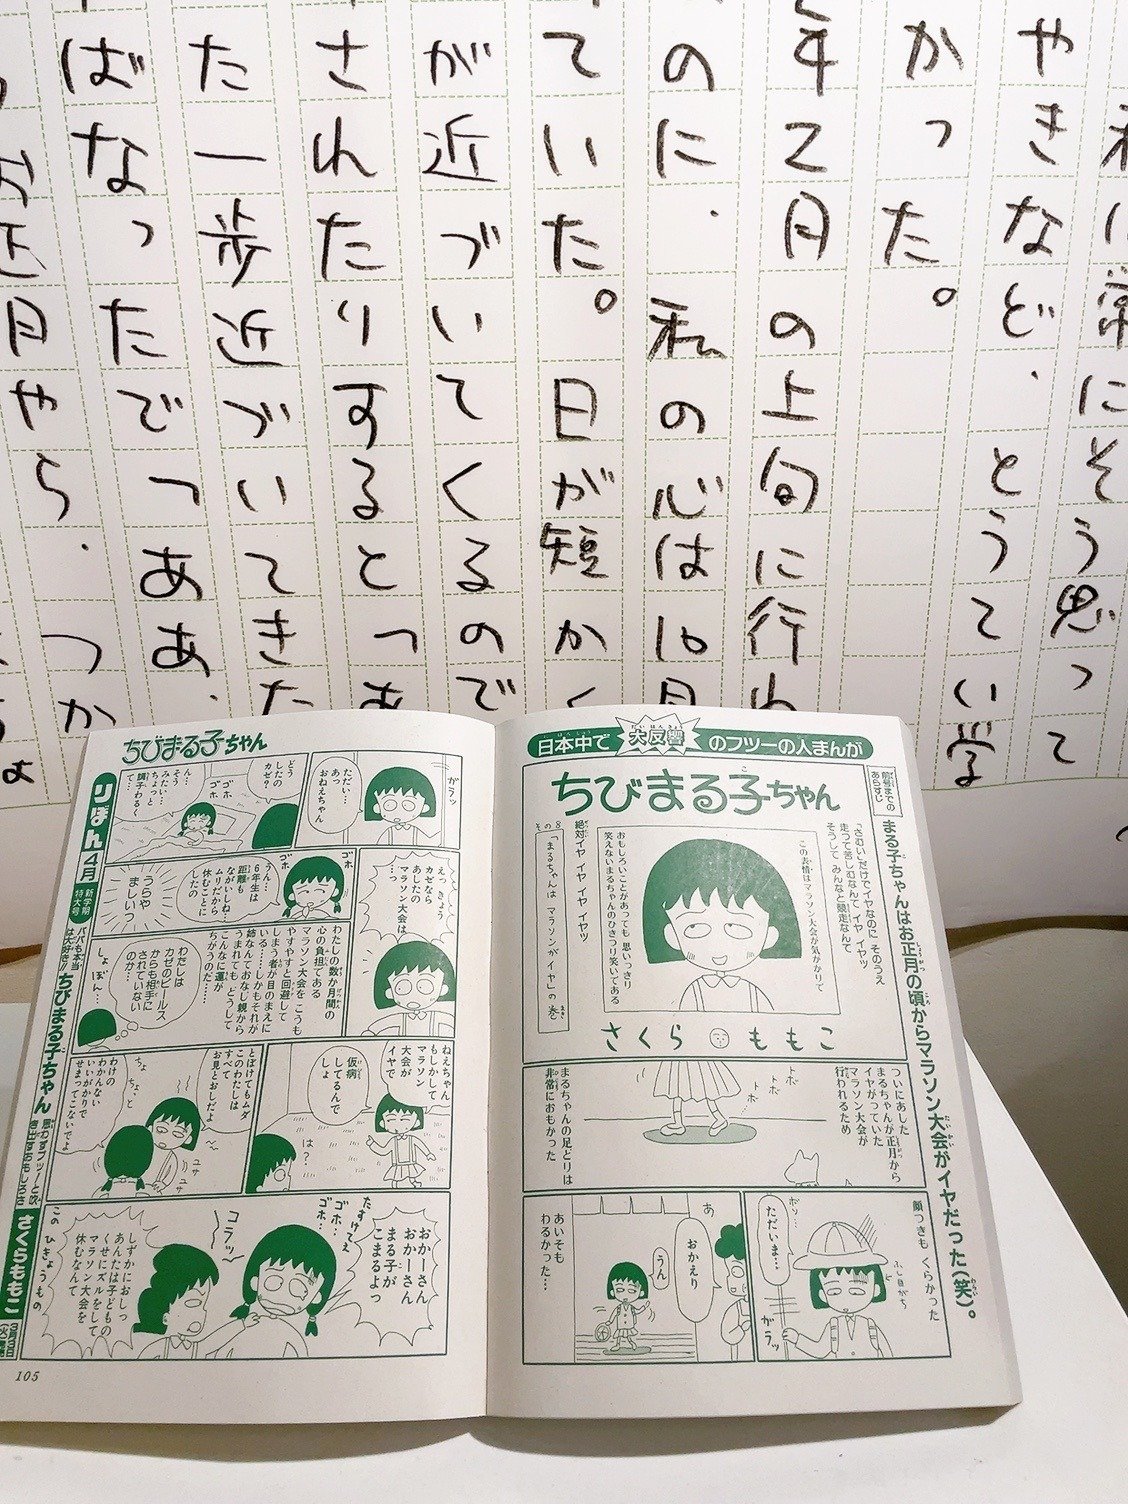 私は常にそう思って
やきなど、とうてい学
かった。
年2月の上旬に行わ
のに、私の心は10月
ていた。日が短かく
が近づいてくるので
されたりするとっあ
た一歩近づいてきた
ばなったでっああ、
お正月やら、つか
日本中で大反響のフツーの人まんが
ちびまる子ちゃん
前号までのあらすじ
まる子ちゃんはお正月の頃からマラソン大会がイヤだった(笑)。
「さむいだけでイヤなのに そのうえ
走って苦しむなんて イヤ イヤッ
そうして みんなと競走なんて
絶対イヤ イヤ イヤ イヤッ
その8
「まるちゃんは マラソンがイヤ」の巻
この表情はマラソン大会が気がかりで
おもしろいことがあっても 思いっきり
笑えないまるちゃんのひきつり笑いである
さくらももこ
ついにあした
まるちゃんが正月から
イヤがっていた
マラソン大会が
行われるため
トボ
トボ
まるちゃんの足どりは
非常におもかった
顔つきも くらかった
ボソ…
ただいま…
ふし目がち
ガラッ
あ
おかえり
うん
あいそも
わるかった…
ちびまる子ちゃん
りぼん4月
新学期特大号
パパも本当は大好き!!
ちびまる子ちゃん
思わずフツーと吹き出すおもしろさ
さくらももこ
ガラッ
ただい…
あっ
おねえちゃん
どう
したの
カゼ?
ゴホ
ゴホ
ん…
そう
みたい…
ちょっと
調子わる〜
えっ きょう
カゼなら
あしたの
マラソン大会は
…っ
ゴホ
ゴホ
うん…
6年生は
距離も
ながいしね…
ムリだから
休むことに
したの
うらや
ましいっ
わたしの数か月間の
心の負担である
マラソン大会を こうも
やすやすと回避して
しまう者が目のまえに
いる……しかもそれが
姉なんておなじ親から
うまれても どうして
こんなに運が
ちがうのだ……
わたしは
カゼのビールス
からも相手に
されていない
のか…
しょぼん…
ねえちゃん
もしかして
マラソン
大会が
イヤで
仮病
してるんで
しょ
は?
とぼけてもムダ
このわたしは
すべて
お見とおしだよ
ちょ
ちょっと
わけの
わかんない
いいがかりで
せまってこないでよ
ユサ
ユサ
おかーさん
おかーさん
まる子が
こまるよっ
たすけてえ
ゴホ
ゴホ…
コラッ
しずかにおしっ
あんたは子どもの
くせにズルをして
マラソン大会を
休むなんて
このひきょうもの
105